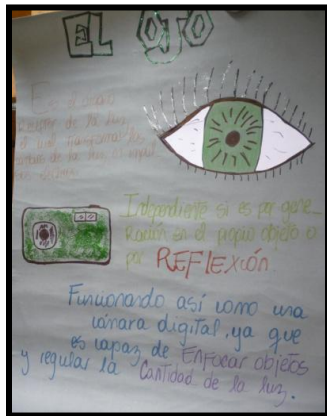 EL OJO
Es el órgano
de la luz,
el cual transforma la
de la luz
Independiente si es por gene-
ración en el propio objeto o
por REFLEXIÓN.
Funcionando así como una
cámara digital, ya que
es capaz de Enfocar objetos
y regular la Cantidad de la luz.